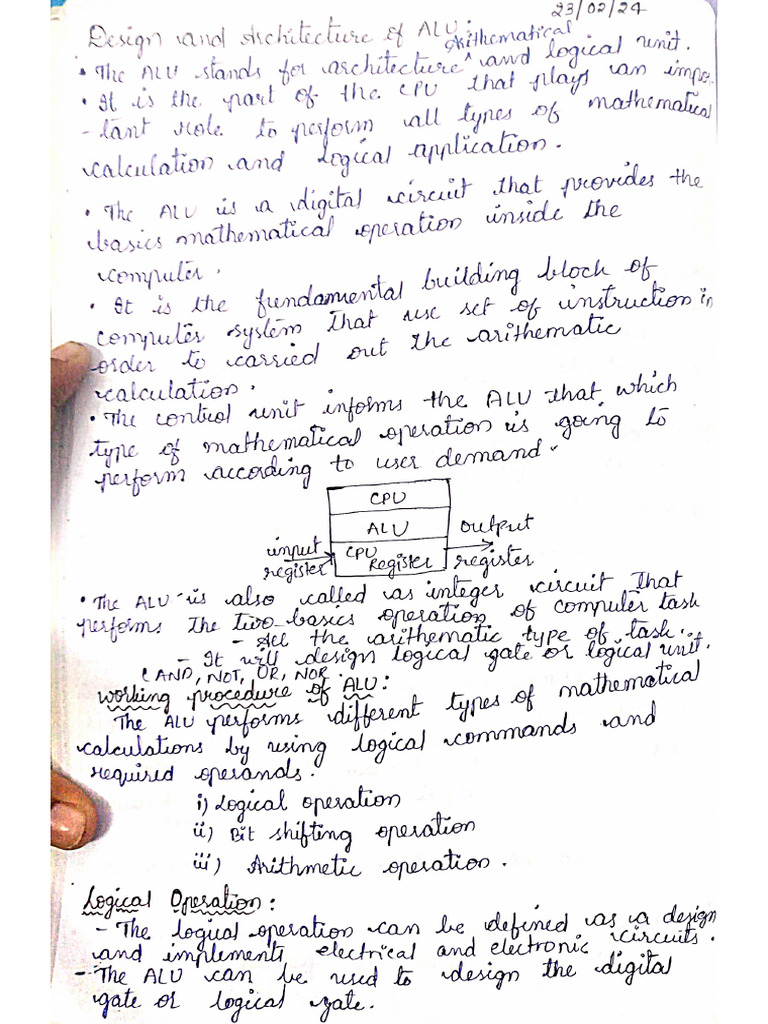 23/02/24
Design and Architecture of ALU:
• The ALU stands for architecture ^ Arithematical and logical unit.
• It is the part of the CPU that plays an impo
- tant role to perform all types of mathematical
calculation and logical application.
• The ALU is a digital circuit that provides the
basics mathematical operation inside the
computer.
• It is the fundamental building block of
computer system that use set of instruction in
order to carried out the arithematic
calculation.
• The control unit informs the ALU that which
type of mathematical operation is going to
perform according to user demand.
CPU
ALU
CPU Register
input register
output register
• The ALU is also called as integer circuit that
performs the two basics operation of computer task
- All the arithematic type of task.
- It will design logical gate or logical unit.
(AND, NOT, OR, NOR.
working procedure of ALU:
The ALU performs different types of mathematical
calculations by using logical commands and
required operands.
i) Logical operation
ii) Bit shifting operation
iii) Arithmetic operation.
Logical Operation:
- The logical operation can be defined as a design
and implements electrical and electronic circuits.
- The ALU can be used to design the digital
gate or logical gate.